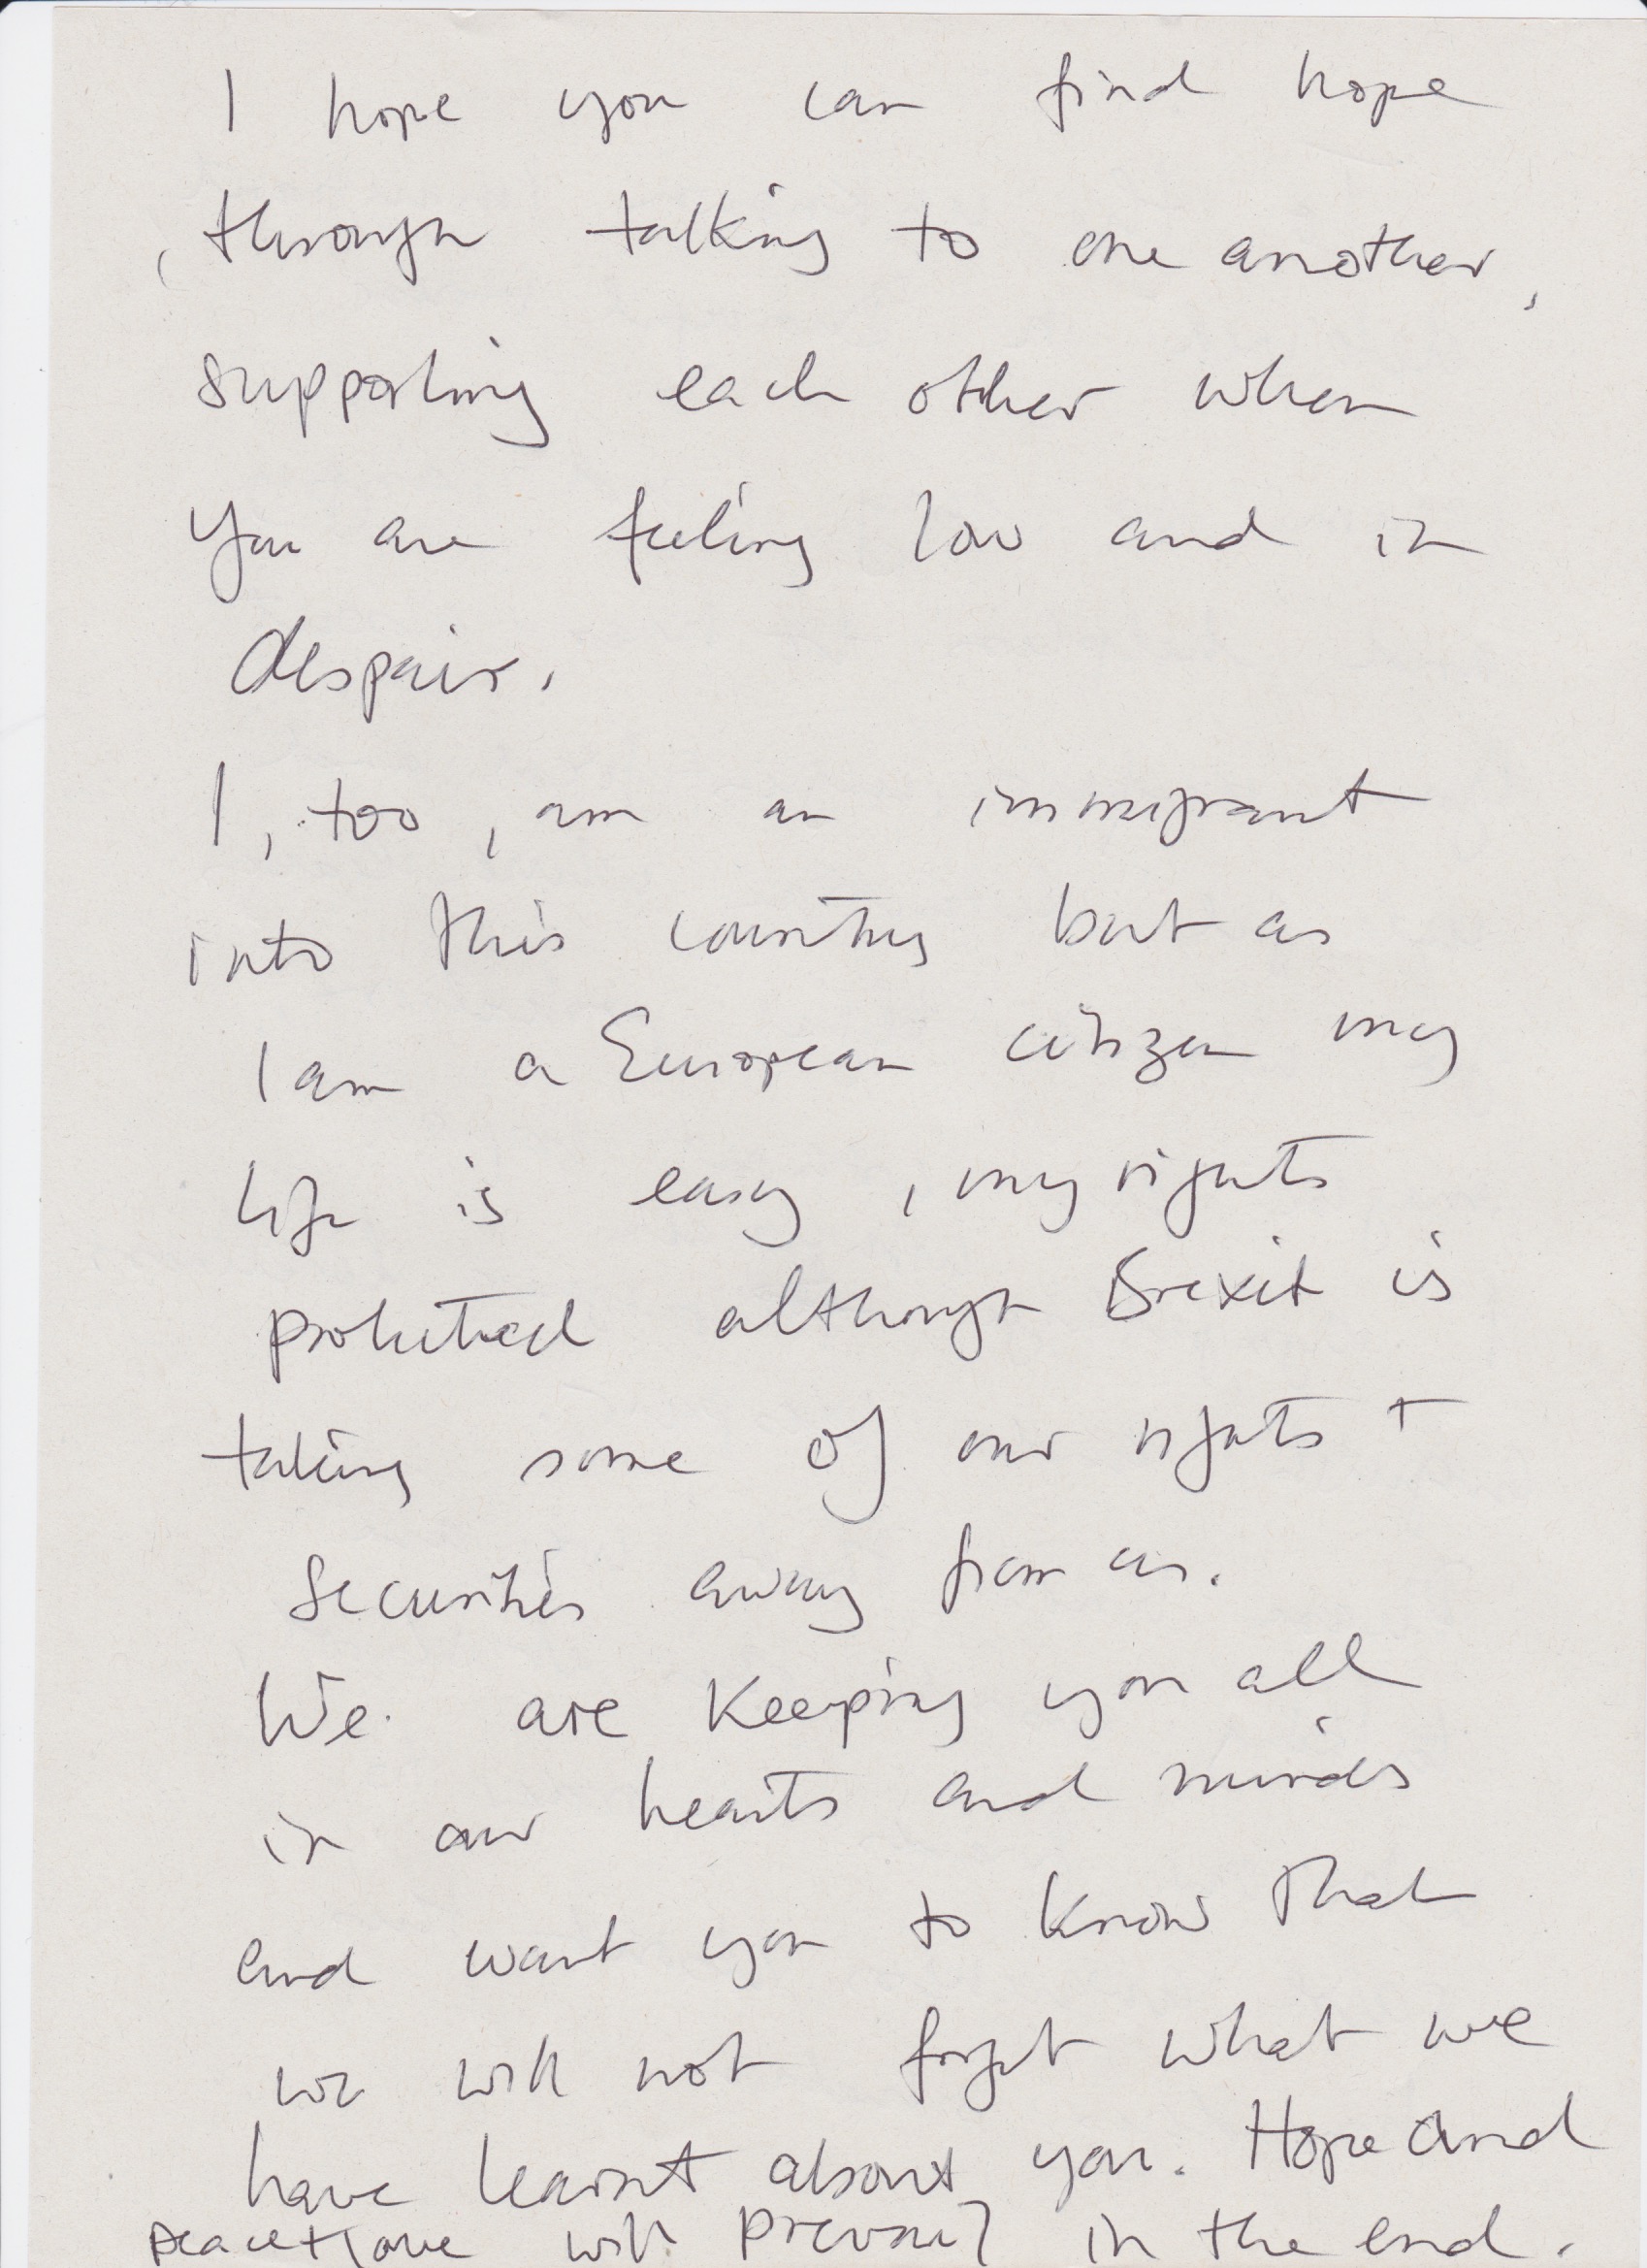 I hope you can find hope
, through talking to one another,
supporting each other when
you are feeling low and in
despair.
I, too, am an immigrant
into this country but as
I am a European citizen my
life is easy, my rights
protected although Brexit is
taking some of our rights +
securities away from us.
We are keeping you all
in our hearts and minds
and want you to know that
we will not forget what we
have learnt about you. Hope and
peace + love will prevail in the end.